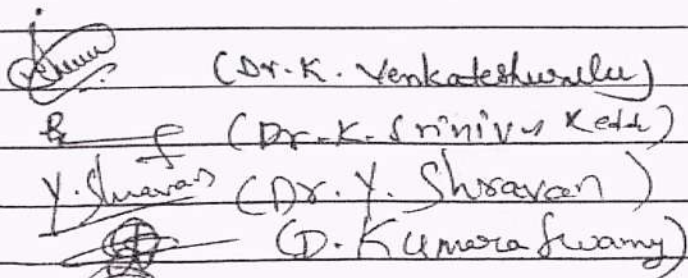 (Dr. K. Venkateshwarlu)
(Dr. K. Srinivas Redd)
Y. Shravan (Dr. Y. Shravan)
(D. Kumara Swamy)